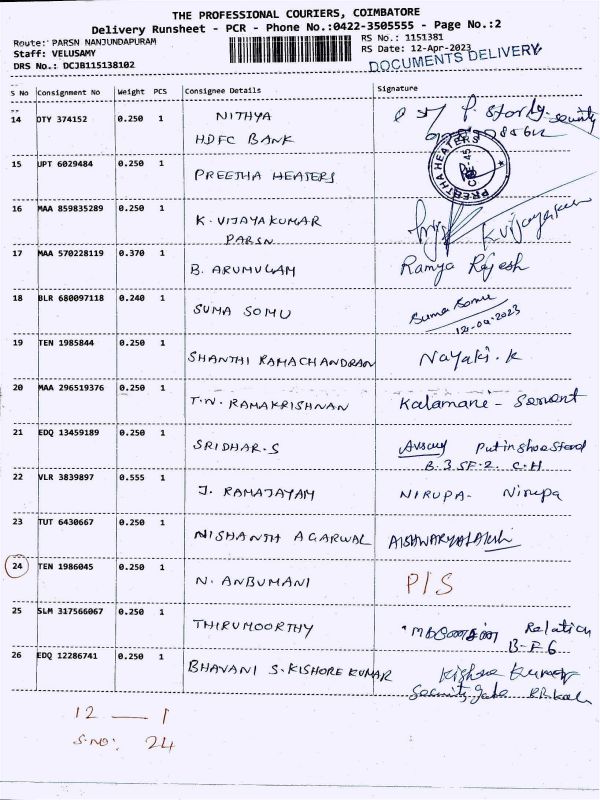 THE PROFESSIONAL COURIERS, COIMBATORE
Delivery Runsheet - PCR - Phone No.:0422-3505555 - Page No.:2
Route: PARSN NANJUNDAPURAM
RS No.: 1151381
Staff: VELUSAMY
RS Date: 12-Apr-2023
DRS No.: DCJB115138102
DOCUMENTS DELIVERY
S No Consignment No Weight PCS Consignee Details Signature
14 OTY 374152 0.250 1 NITHYA
HDFC BANK
15 UPT 6029484 0.250 1 PREETHA HEATERS
PREETHA HEATERS
16 MAA 859835289 0.250 1 K. VIJAYAKUMAR K Vijayakumar
PARSN
17 MAA 570228119 0.370 1 B. ARUMUGAM Ramya Rajesh
18 BLR 680097118 0.240 1 SUMA SOMU Suma Somu
12-04-2023
19 TEN 1985844 0.250 1 SHANTHI RAMACHANDRAN Nayaki.K
20 MAA 296519376 0.250 1 T.N. RAMAKRISHNAN Kalamani - Servent
21 EDQ 13459189 0.250 1 SRIDHAR.S Put in shoe Stand
B.3 SF-2. C.H
22 VLR 3839897 0.555 1 J. RAMAJAYAM NIRUPA- Nirupa
23 TUT 6430667 0.250 1 NISHANTH AGARWAL
24 TEN 1986045 0.250 1 N. ANBUMANI P/S
25 SLM 317566067 0.250 1 THIRUMOORTHY Relation
B-F6
26 EDQ 12286741 0.250 1 BHAVANI S.KISHORE KUMAR Kishore Kumar
12 — 1
S.NO: 24